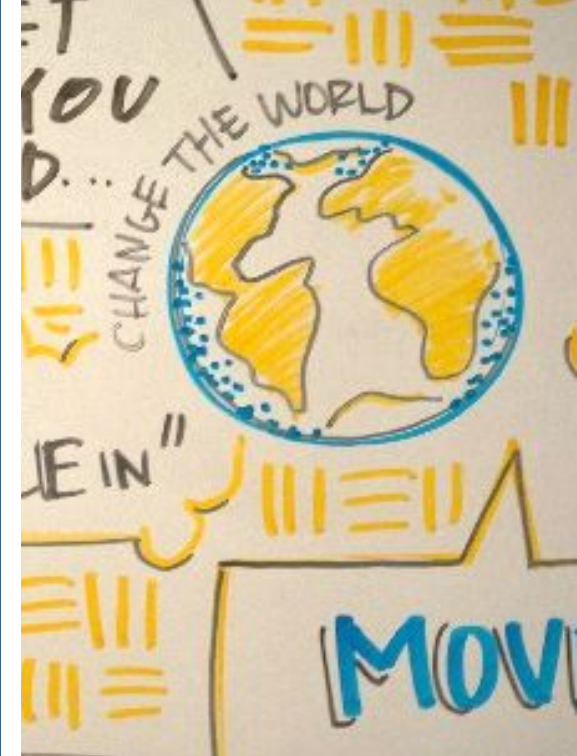 ET
YOU
D...
CHANGE THE WORLD
IE IN"
MOV